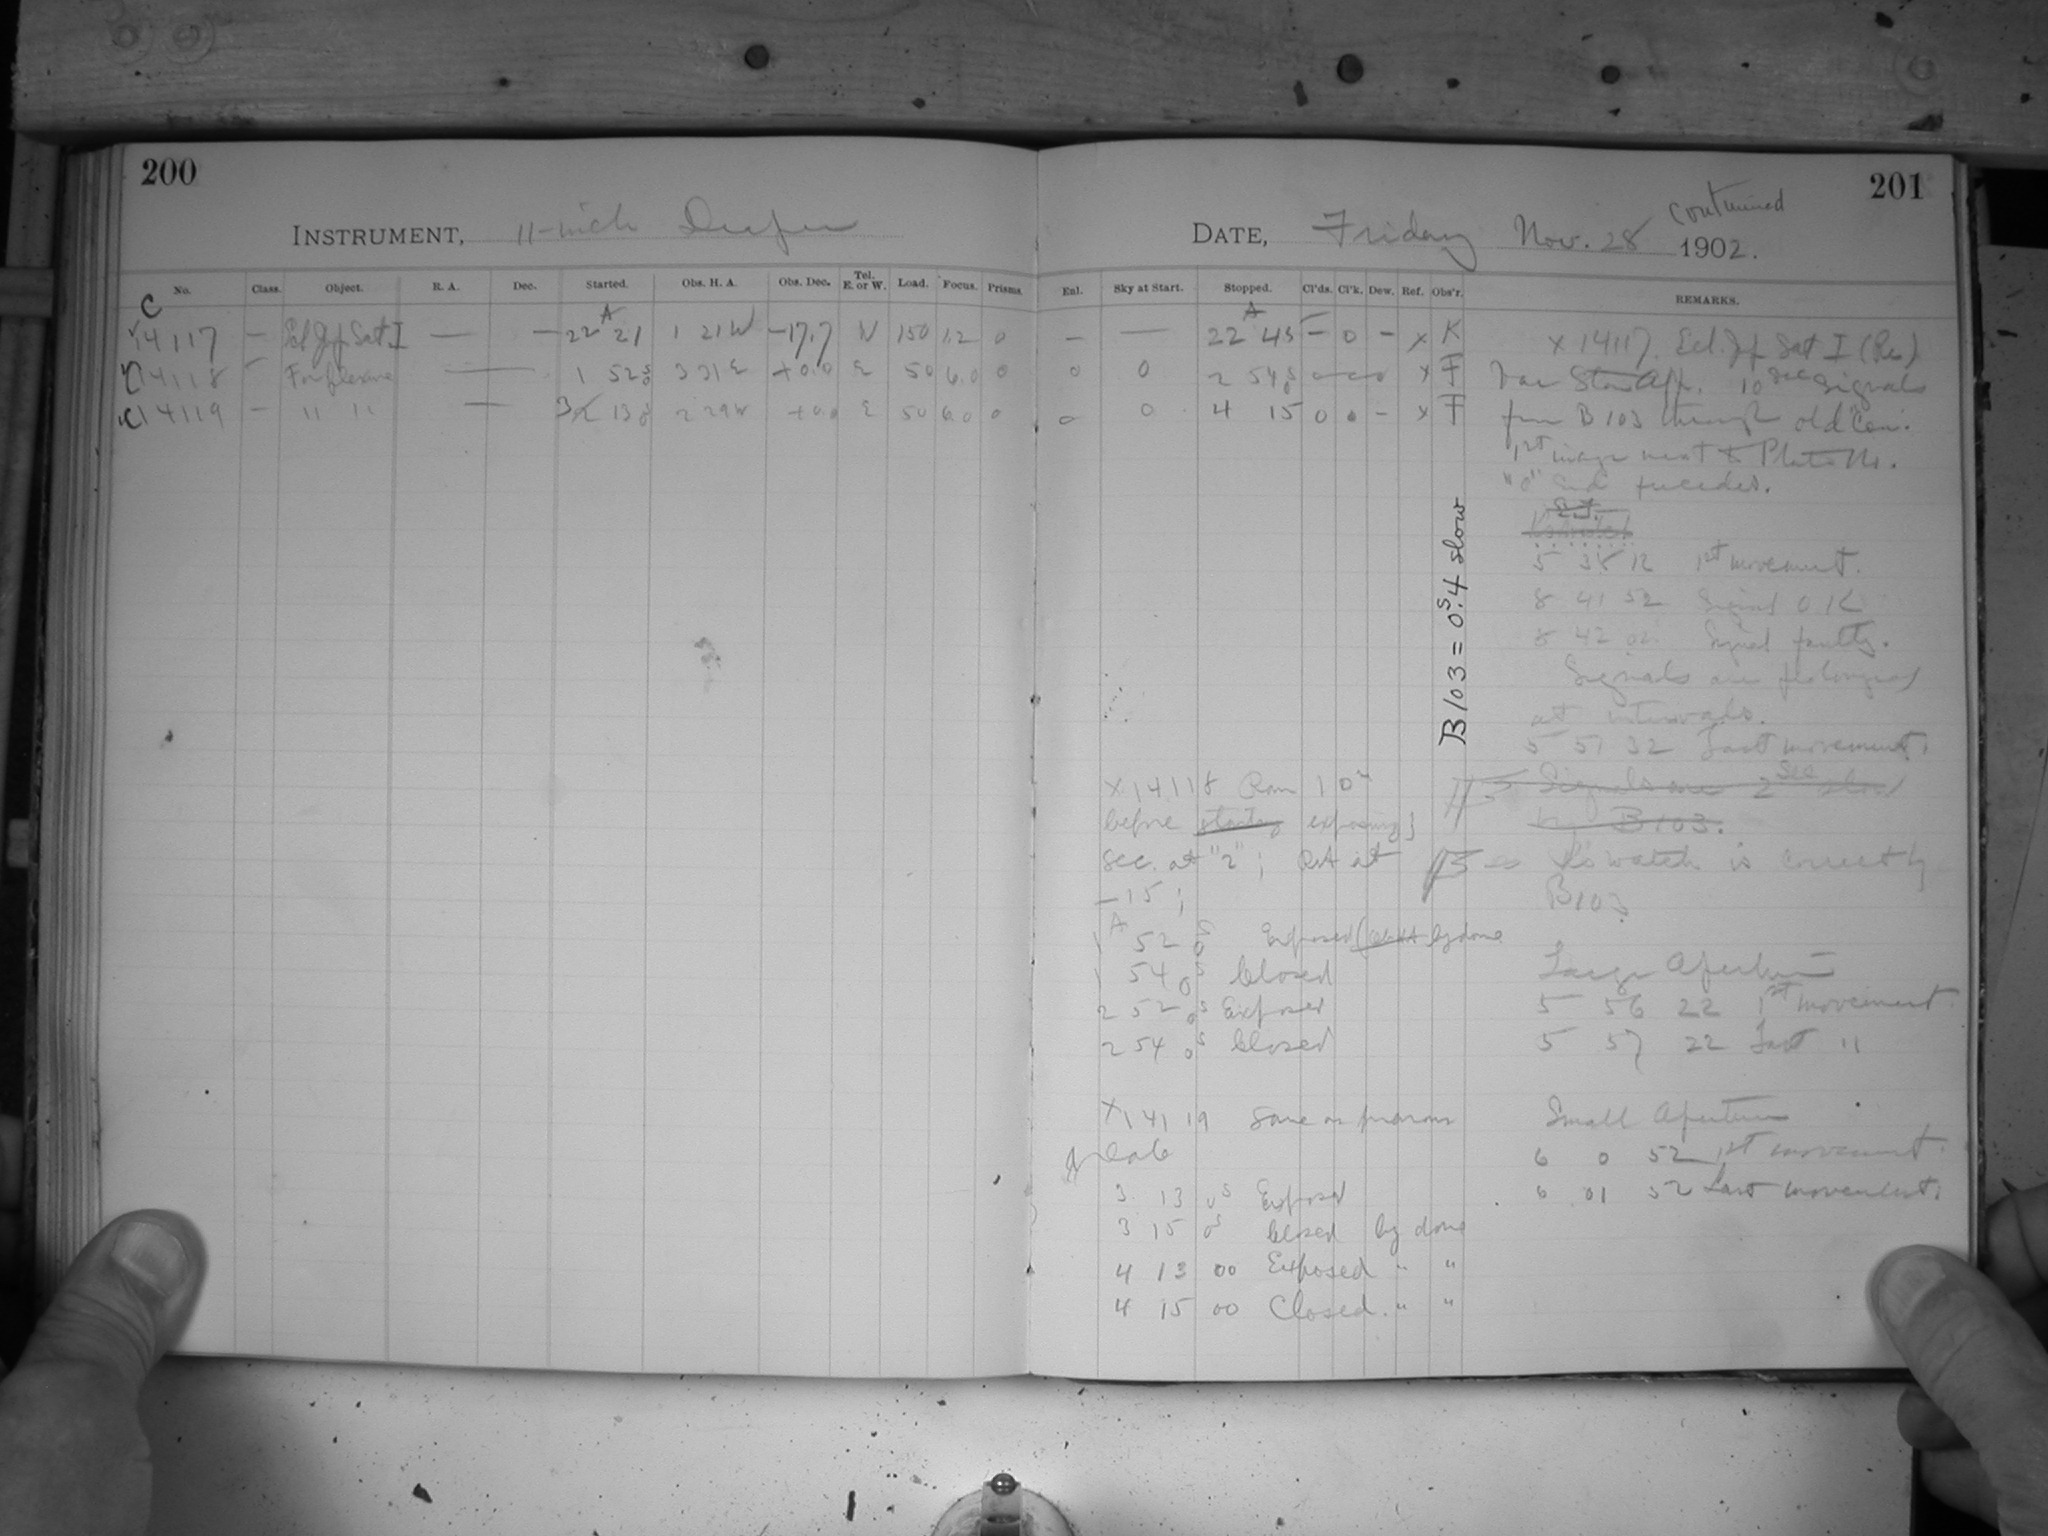 200
INSTRUMENT, 11-inch Draper
C
No. Class. Object. R. A. Dec. Started. Obs. H. A. Obs. Dec. Tel. E. or W. Load. Focus. Prisms.
14117 — Ecl Jup Sat. I — — 22 21 1 21 W −17.7 W 150 12 0
14118 — For flexure — 1 52 0 3 31 E +0.0 E 50 6.0 0
C14119 — " " — 3 13 0 2 29 W +0.0 E 50 6.0 0
201
DATE, Friday Nov. 28 1902. continued
Enl. Sky at Start. Stopped. Cl'ds. Cl'k. Dew. Ref. Obs'r. REMARKS.
— — 22 45 — 0 — x K
0 0 2 54 0 x F
0 0 4 15 0 0 — x F
x 14117. Ecl. Jup Sat I (Re)
App. 10 sec signals
from B 103 through old
1st image next to Plate No.
"0" End precedes.
5 38 12 1st movement.
8 41 52 Signal O K
8 42 02 Signal faulty.
Signals are prolonged
at intervals.
5 51 32 Last movement.
Signals are 2 sec slow
by B 103.
watch is correct by
B 103
Large Aperture
5 56 22 1st movement
5 57 22 Last "
Small Aperture
6 0 52 1st movement.
6 01 52 Last movement.
B 103 = 0s.4 slow
x 14118 Ran 10m
before starting exposing;
sec. at "2"; RA at
—15;
1 52 0s Exposed by dome
1 54 0s Closed
2 52 0s Exposed
2 54 0s Closed
x 14119 Same as previous
plate
3 13 0s Exposed
3 15 0s Closed by dome
4 13 00 Exposed " "
4 15 00 Closed. " "